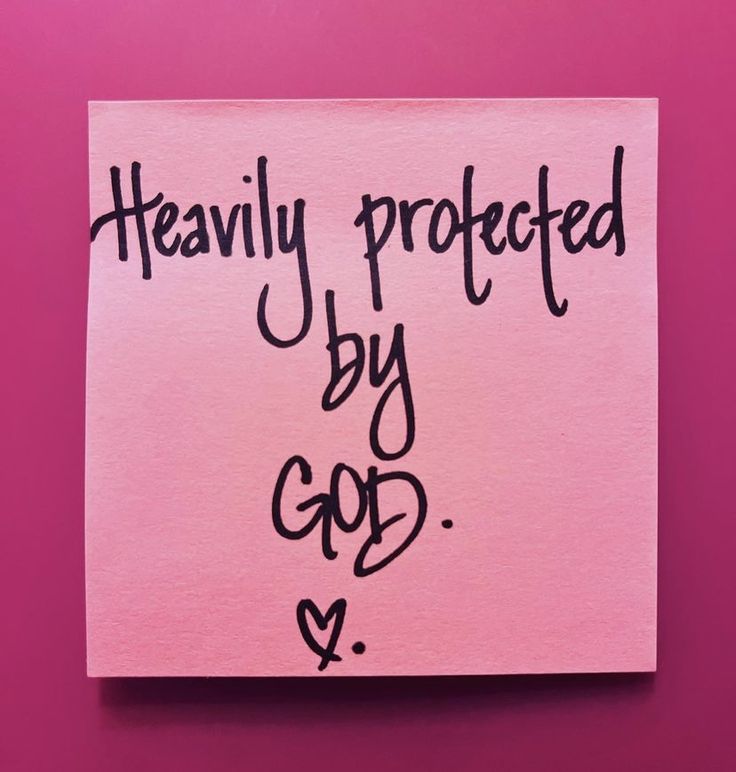 Heavily protected
by
GOD.
♡.